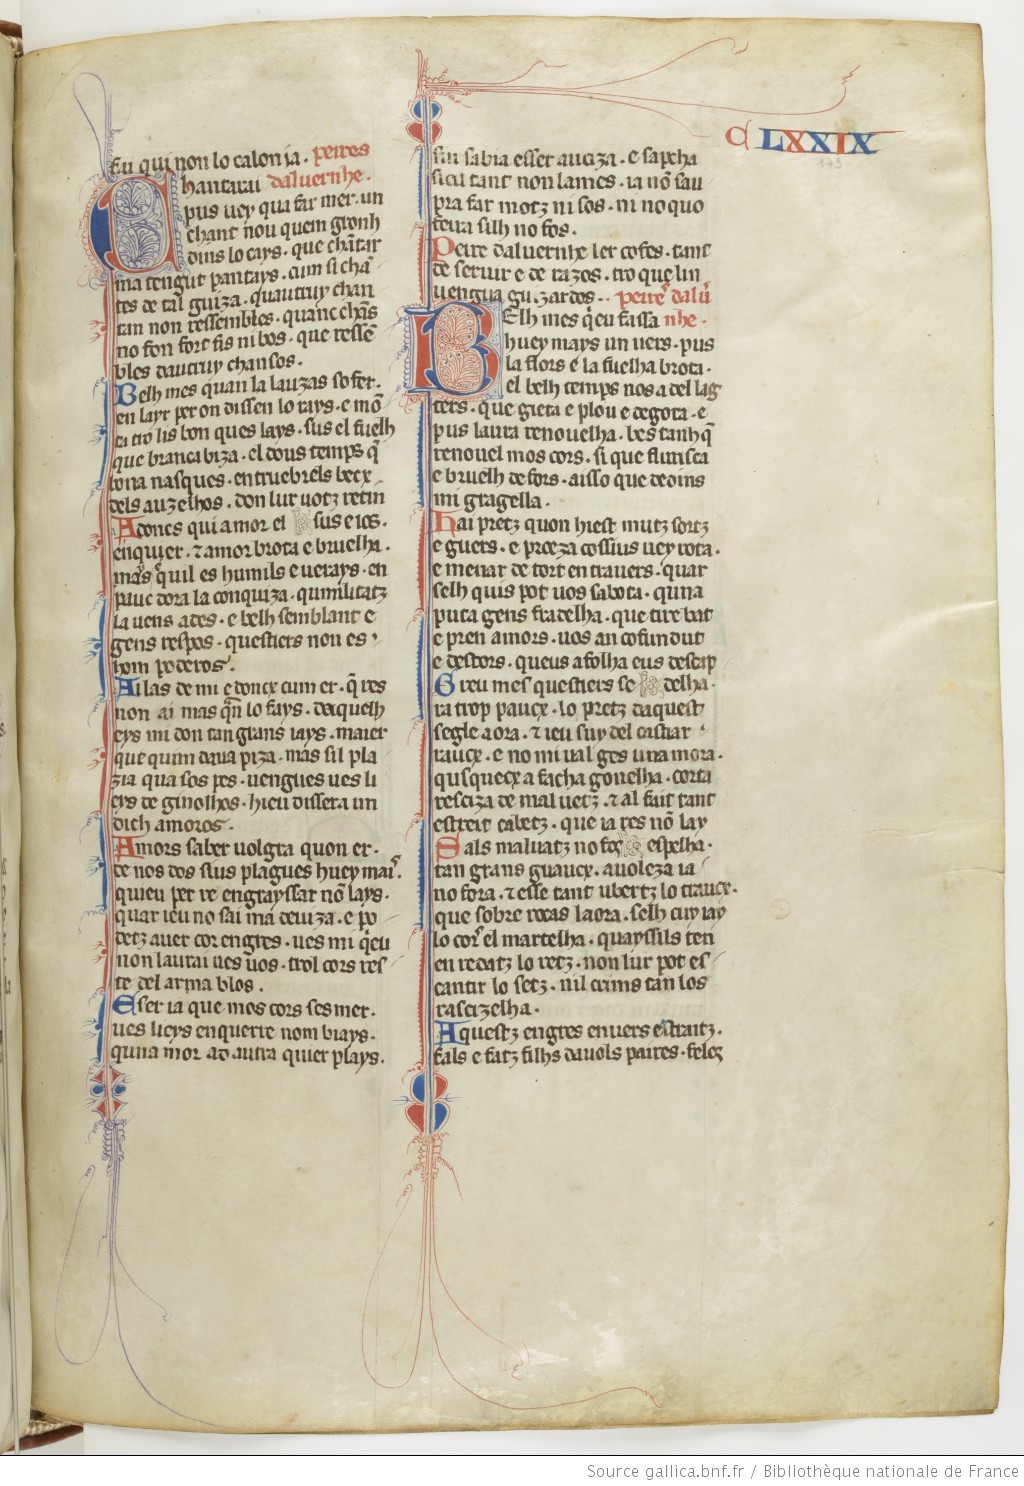 C LXXIX
179
ieu qui non lo calonia. Peires
Chantarai dalvernhe.
pus vey qua far mer. un
chant nou quem gronh
dins lo cays. que chātar
ma tengut pantays. cum si chā
tes de tal guiza. quautruy chan
tan non ressembles. quanc chās
no fon fort fis ni bos. que ressē
bles dautruy chansos.
Belh mes quan la lauzas sofer.
en layr per on dissen lo rays. e mō
ta tro lis bon ques lays. sus el fuelh
que branca biza. el dous temps q̄
bona nasques. entruebrels becx
dels auzelhos. don lur votz retin
Adoncs qui amor el sus e ios.
enquier. ⁊ amor brota e bruelha.
mas quil es humils e verays. en
pauc dora la conquiza. qumilitatz
la vens ades. e belh semblant e
gens respos. questiers non es
hom poderos.
Ailas de mi e doncx cum er. q̄ res
non ai mas qn̄ lo fays. daquelh
eys mi don tan grans iays. maier
que qui m dava piza. mas sil pla
zia qua sos pes. vengues ves li
eys de ginolhos. hieu dissera un
dich amoros.
Amors saber volgra quon er.
de nos dos sius plagues huey mais.
quieu per re engrayssar nō lays.
quar ieu no sai ma deviza. e po
detz aver cor engres. ves mi q̄eu
non laurai ves vos. trol cors res
te del arma blos.
Eser ia que mos cors sesmer.
ves lieys enquerre nom biays.
quna mor ad autra quier plays.
sin sabia esser auciza. e sapcha
sieu tant non lames. ia nō sau
pra far motz ni sos. ni no quo
feira silh no fos.
Peire dalvernhe ler cofes. tant
de servir e de razos. tro que lin
vengua guizardos. peire dalv̄
Belh mes q̄eu fassa nhe.
huey mays un vers. pus
la flors e la fuelha brota.
el belh temps nos a del lag
ters. que gieta e plou e degota. e
pus laura renovelha. bes tanh q̄
renovel mos cors. si que flurisca
e bruelh defors. aisso que dedins
mi gragella.
Hai pretz quon hiest mutz sortz
e guers. e proeza cossius vey rota.
e menar de tort en travers. quar
selh quis pot vos sabota. quna
puta gens fradelha. que tire bat
e pren amors. vos an cofundut
e destors. queus afolha eus descap
Greu mes questiers se delha.
ra trop paucx. lo pretz daquest
segle aora. ⁊ ieu suy del castiar
raucx. e no mi val ges una mora.
qusquecx a facha gonelha. corta
resciza de malvetz. ⁊ al fait tant
estreit cabetz. que ia res nō lay
Sals malvatz no fos espelha.
tan grans gaucx. avoleza ia
no fora. ⁊ esse tant ubertz lo traucx.
que sobre rocas laora. selh cuy iay
lo cor el martelha. quayssils ten
en redatz lo retz. non lur pot es
cantir lo setz. nil crims tan los
rascizelha.
Aquestz engres envers estraitz.
fals e fatz filhs davols paires. felos
Source gallica.bnf.fr / Bibliothèque nationale de France